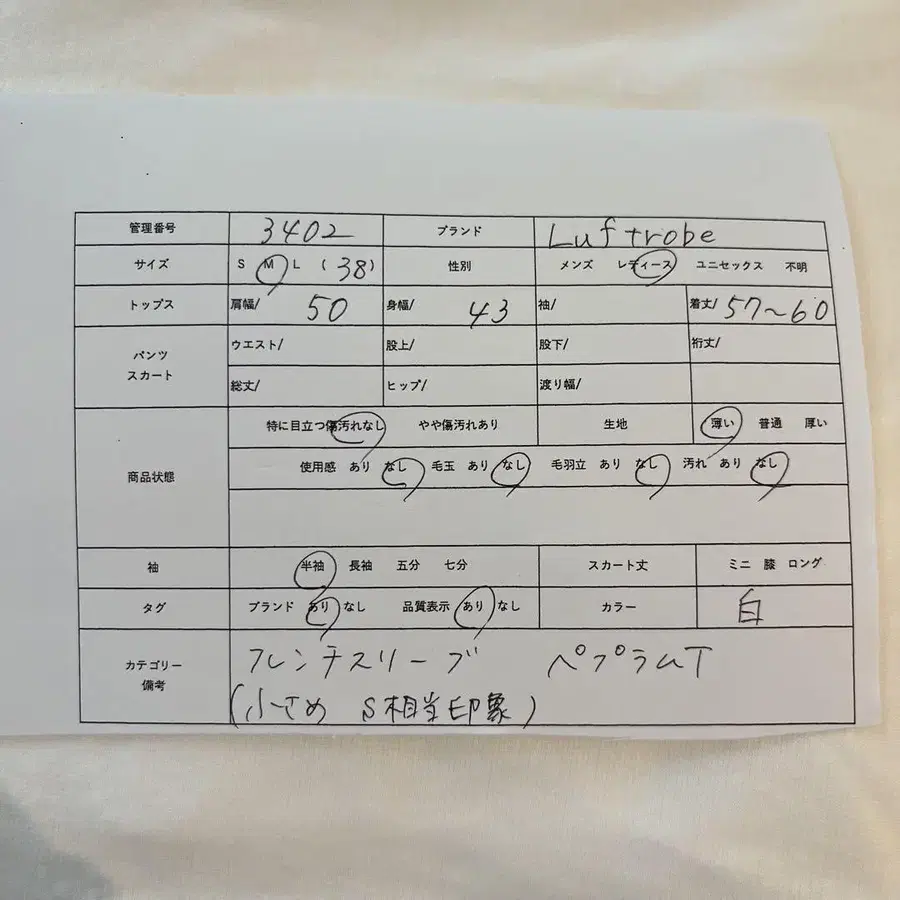 管理番号 3402 ブランド Luftrobe
サイズ S M L (38) 性別 メンズ レディース ユニセックス 不明
トップス 肩幅/ 50 身幅/ 43 袖/ 着丈/ 57~60
パンツ スカート ウエスト/ 股上/ 股下/ 裄丈/
総丈/ ヒップ/ 渡り幅/
商品状態 特に目立つ傷汚れなし やや傷汚れあり 生地 薄い 普通 厚い
使用感 あり なし 毛玉 あり なし 毛羽立 あり なし 汚れ あり なし
袖 半袖 長袖 五分 七分 スカート丈 ミニ 膝 ロング
タグ ブランド あり なし 品質表示 あり なし カラー 白
カテゴリー 備考 フレンチスリーブ ペプラムT
(小さめ S相当印象)